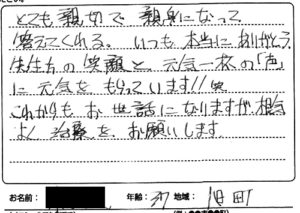 とても親切で親身になって
答えてくれる。いつも本当にありがとう
先生方の笑顔と元気一杯の「声」
に元気をもらっています!!
これからもお世話になりますが、根気
よく治療をお願いします
お名前: 年齢: 37 地域: 旧町